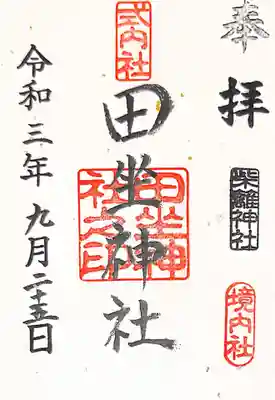 奉拝
柴籬神社
境内社
式内社
田坐神社
田坐神社之印
令和三年九月二十五日